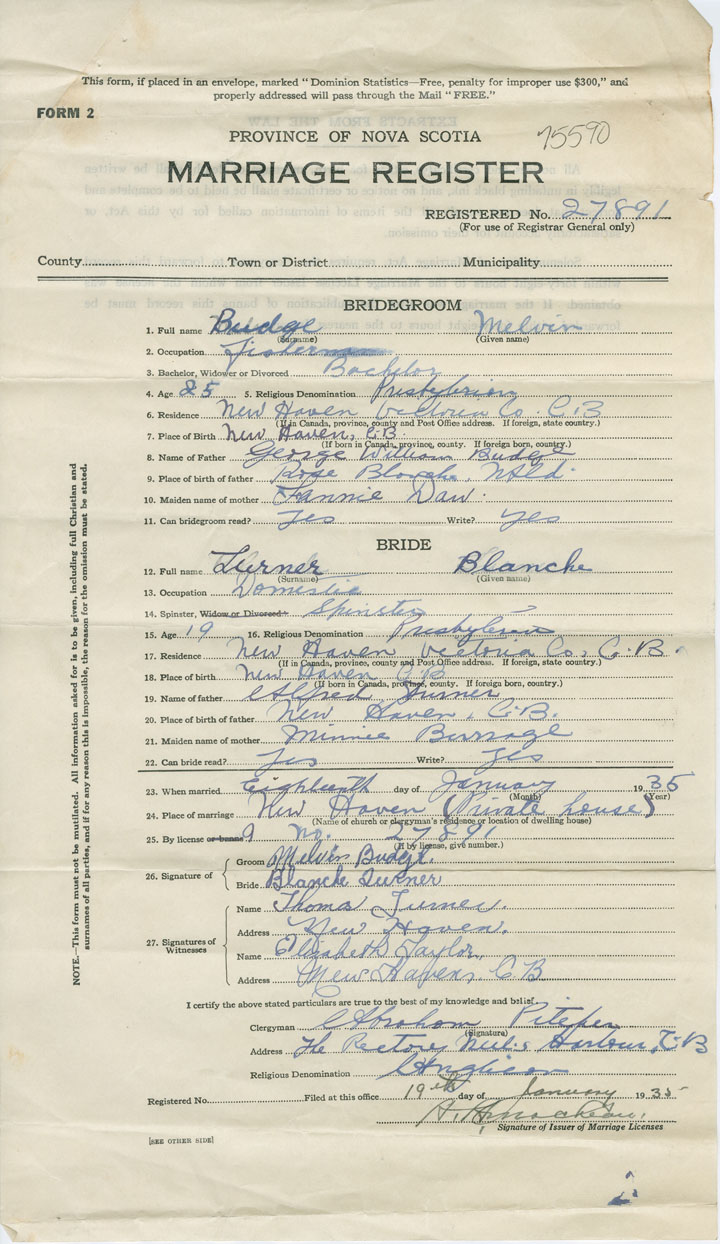 This form, if placed in an envelope, marked "Dominion Statistics—Free, penalty for improper use $300," and
properly addressed will pass through the Mail "FREE."
FORM 2
75590
PROVINCE OF NOVA SCOTIA
MARRIAGE REGISTER
REGISTERED No. 27891
(For use of Registrar General only)
County Town or District Municipality
BRIDEGROOM
1. Full name Budge Melvin
(Surname) (Given name)
2. Occupation Fisherman
3. Bachelor, Widower or Divorced Bachelor
4. Age 25 5. Religious Denomination Presbyterian
6. Residence New Haven Victoria Co. C.B
(If in Canada, province, county and Post Office address. If foreign, state country.)
7. Place of Birth New Haven, C.B
(If born in Canada, province, county. If foreign born, country.)
8. Name of Father George William Budge
9. Place of birth of father Rose Blanche, Nfld.
10. Maiden name of mother Fannie Daw.
11. Can bridegroom read? Yes Write? Yes
BRIDE
12. Full name Turner Blanche
(Surname) (Given name)
13. Occupation Domestic
14. Spinster, Widow or Divorced Spinster
15. Age 19 16. Religious Denomination Presbyterian
17. Residence New Haven Victoria Co. C.B.
(If in Canada, province, county and Post Office address. If foreign, state country.)
18. Place of birth New Haven C.B
(If born in Canada, province, county. If foreign born, country.)
19. Name of father Alfred Turner
20. Place of birth of father New Haven, C.B.
21. Maiden name of mother Minnie Burrage
22. Can bride read? Yes Write? Yes
23. When married Eighteenth day of January 1935
(Month) (Year)
24. Place of marriage New Haven (Private house)
(Name of church or clergyman's residence or location of dwelling house)
25. By license or banns No. 27891
(If by license, give number.)
26. Signature of
Groom Melvin Budge.
Bride Blanche Turner
27. Signatures of Witnesses
Name Thomas Turner.
Address New Haven.
Name Elizabeth Taylor.
Address New Haven, C.B
I certify the above stated particulars are true to the best of my knowledge and belief.
Clergyman Abraham
(Signature)
Address The Rectory Neil's Harbour, C.B
Religious Denomination Anglican
Registered No. Filed at this office 19th day of January 1935
Signature of Issuer of Marriage Licenses
[SEE OTHER SIDE]
NOTE.—This form must not be mutilated. All information asked for is to be given, including full Christian and
surnames of all parties, and if for any reason this is impossible, the reason for the omission must be stated.